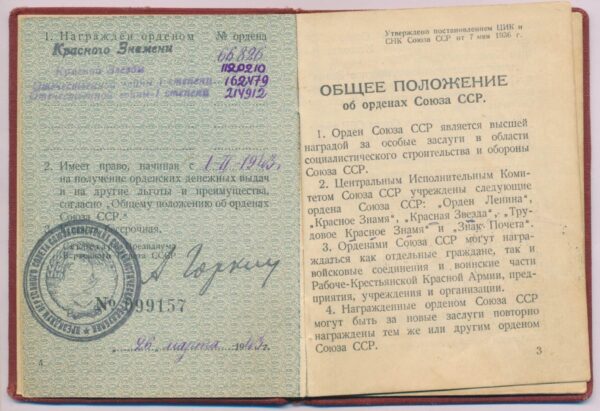 1. Награжден орденом № ордена
Красного Знамени 66826
Красной Звезды
Отечественной войны I степени 162479
Отечественной войны I степени 214912
2. Имеет право, начиная с 1-II-1943г.
на получение орденских денежных выдач
и на другие льготы и преимущества,
согласно „Общему положению об орденах
Союза ССР.“
3. срочная.
Секретарь Президиума
Верховного Совета СССР
А Горкин
№ 099157
26 марта 1943г.
4
Утверждено постановлением ЦИК и
СНК Союза ССР от 7 мая 1936 г.
ОБЩЕЕ ПОЛОЖЕНИЕ
об орденах Союза ССР.
1. Орден Союза ССР является высшей
наградой за особые заслуги в области
социалистического строительства и обороны
Союза ССР.
2. Центральным Исполнительным Коми-
тетом Союза ССР учреждены следующие
ордена Союза ССР: „Орден Ленина",
„Красное Знамя", „Красная Звезда", „Тру-
довое Красное Знамя" и „Знак Почета".
3. Орденами Союза ССР могут награ-
ждаться как отдельные граждане, так и
войсковые соединения и воинские части
Рабоче-Крестьянской Красной Армии, пред-
приятия, учреждения и организации.
4. Награжденные орденом Союза ССР
могут быть за новые заслуги повторно
награждены тем же или другим орденом
Союза ССР.
3